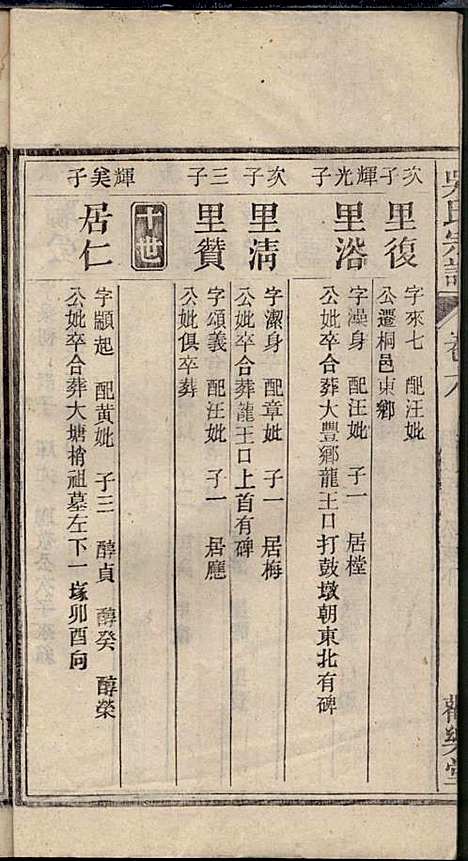 吳氏宗譜
卷八
次子
里復
字來七 配汪妣
公遷桐邑東鄉
輝光子
里浴
字澡身 配汪妣 子一 居樘
公妣卒合葬大豐鄉龍王口打鼓墩朝東北有碑
次子
里清
字潔身 配章妣 子一 居梅
公妣卒合葬龍王口上首有碑
三子
里贊
字頌義 配汪妣 子一 居廳
公妣俱卒葬
十世
輝奚子
居仁
字顯起 配黃妣 子三 醇貞 醇癸 醇榮
公妣卒合葬大塘梢祖墓左下一塚卯酉向